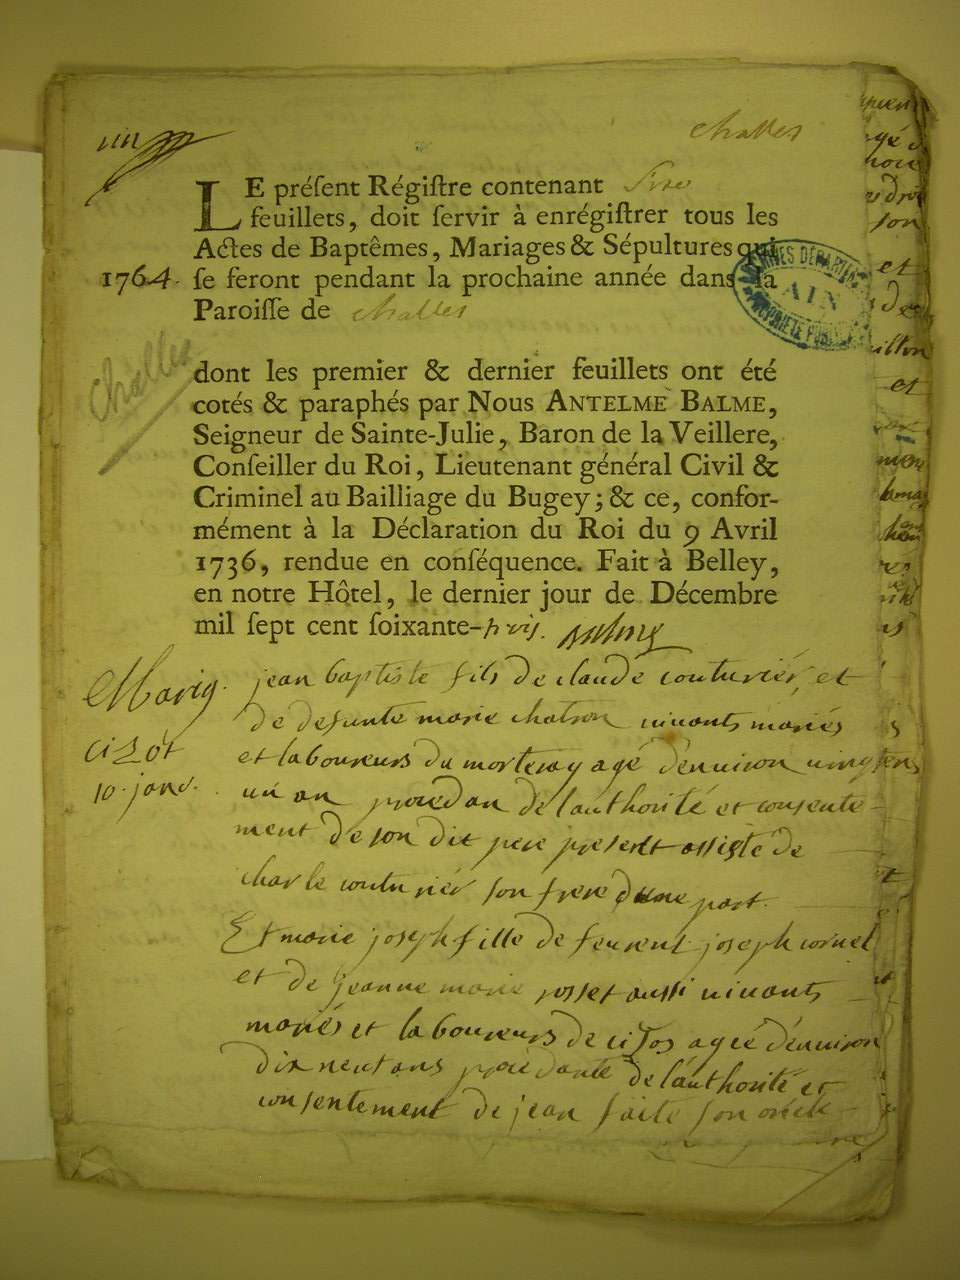 challes
LE préſent Régiſtre contenant Sixe
feuillets, doit ſervir à enrégiſtrer tous les
Actes de Baptêmes, Mariages & Sépultures qui
1764. ſe feront pendant la prochaine année dans la
Paroiſſe de challes
ARCHIVES DÉPARTEM
AIN
PROPRIÉTÉ PUBL
Challes
dont les premier & dernier feuillets ont été
cotés & paraphés par Nous ANTELME BALME,
Seigneur de Sainte-Julie, Baron de la Veillere,
Conſeiller du Roi, Lieutenant général Civil &
Criminel au Bailliage du Bugey; & ce, confor-
mément à la Déclaration du Roi du 9 Avril
1736, rendue en conſéquence. Fait à Belley,
en notre Hôtel, le dernier jour de Décembre
mil ſept cent ſoixante-trois.
Mariag.
cizot
10. janv.
jean baptiste fils de claude couturiér, et
de defunte marie chatron vivants mariés
et laboureurs du morteray agé dénviron vingt
un an procedan de lauthorité et consente-
ment de son dit pere present assisté de
charle couturiér son frere dune part.
Et marie joseph fille de feu joseph cornet
et de jeanne marie josset aussi vivants
mariés et laboureurs de cizos agée dénviron
dix neuf ans procedante de lauthorité et
consentement de jean faite son oncle